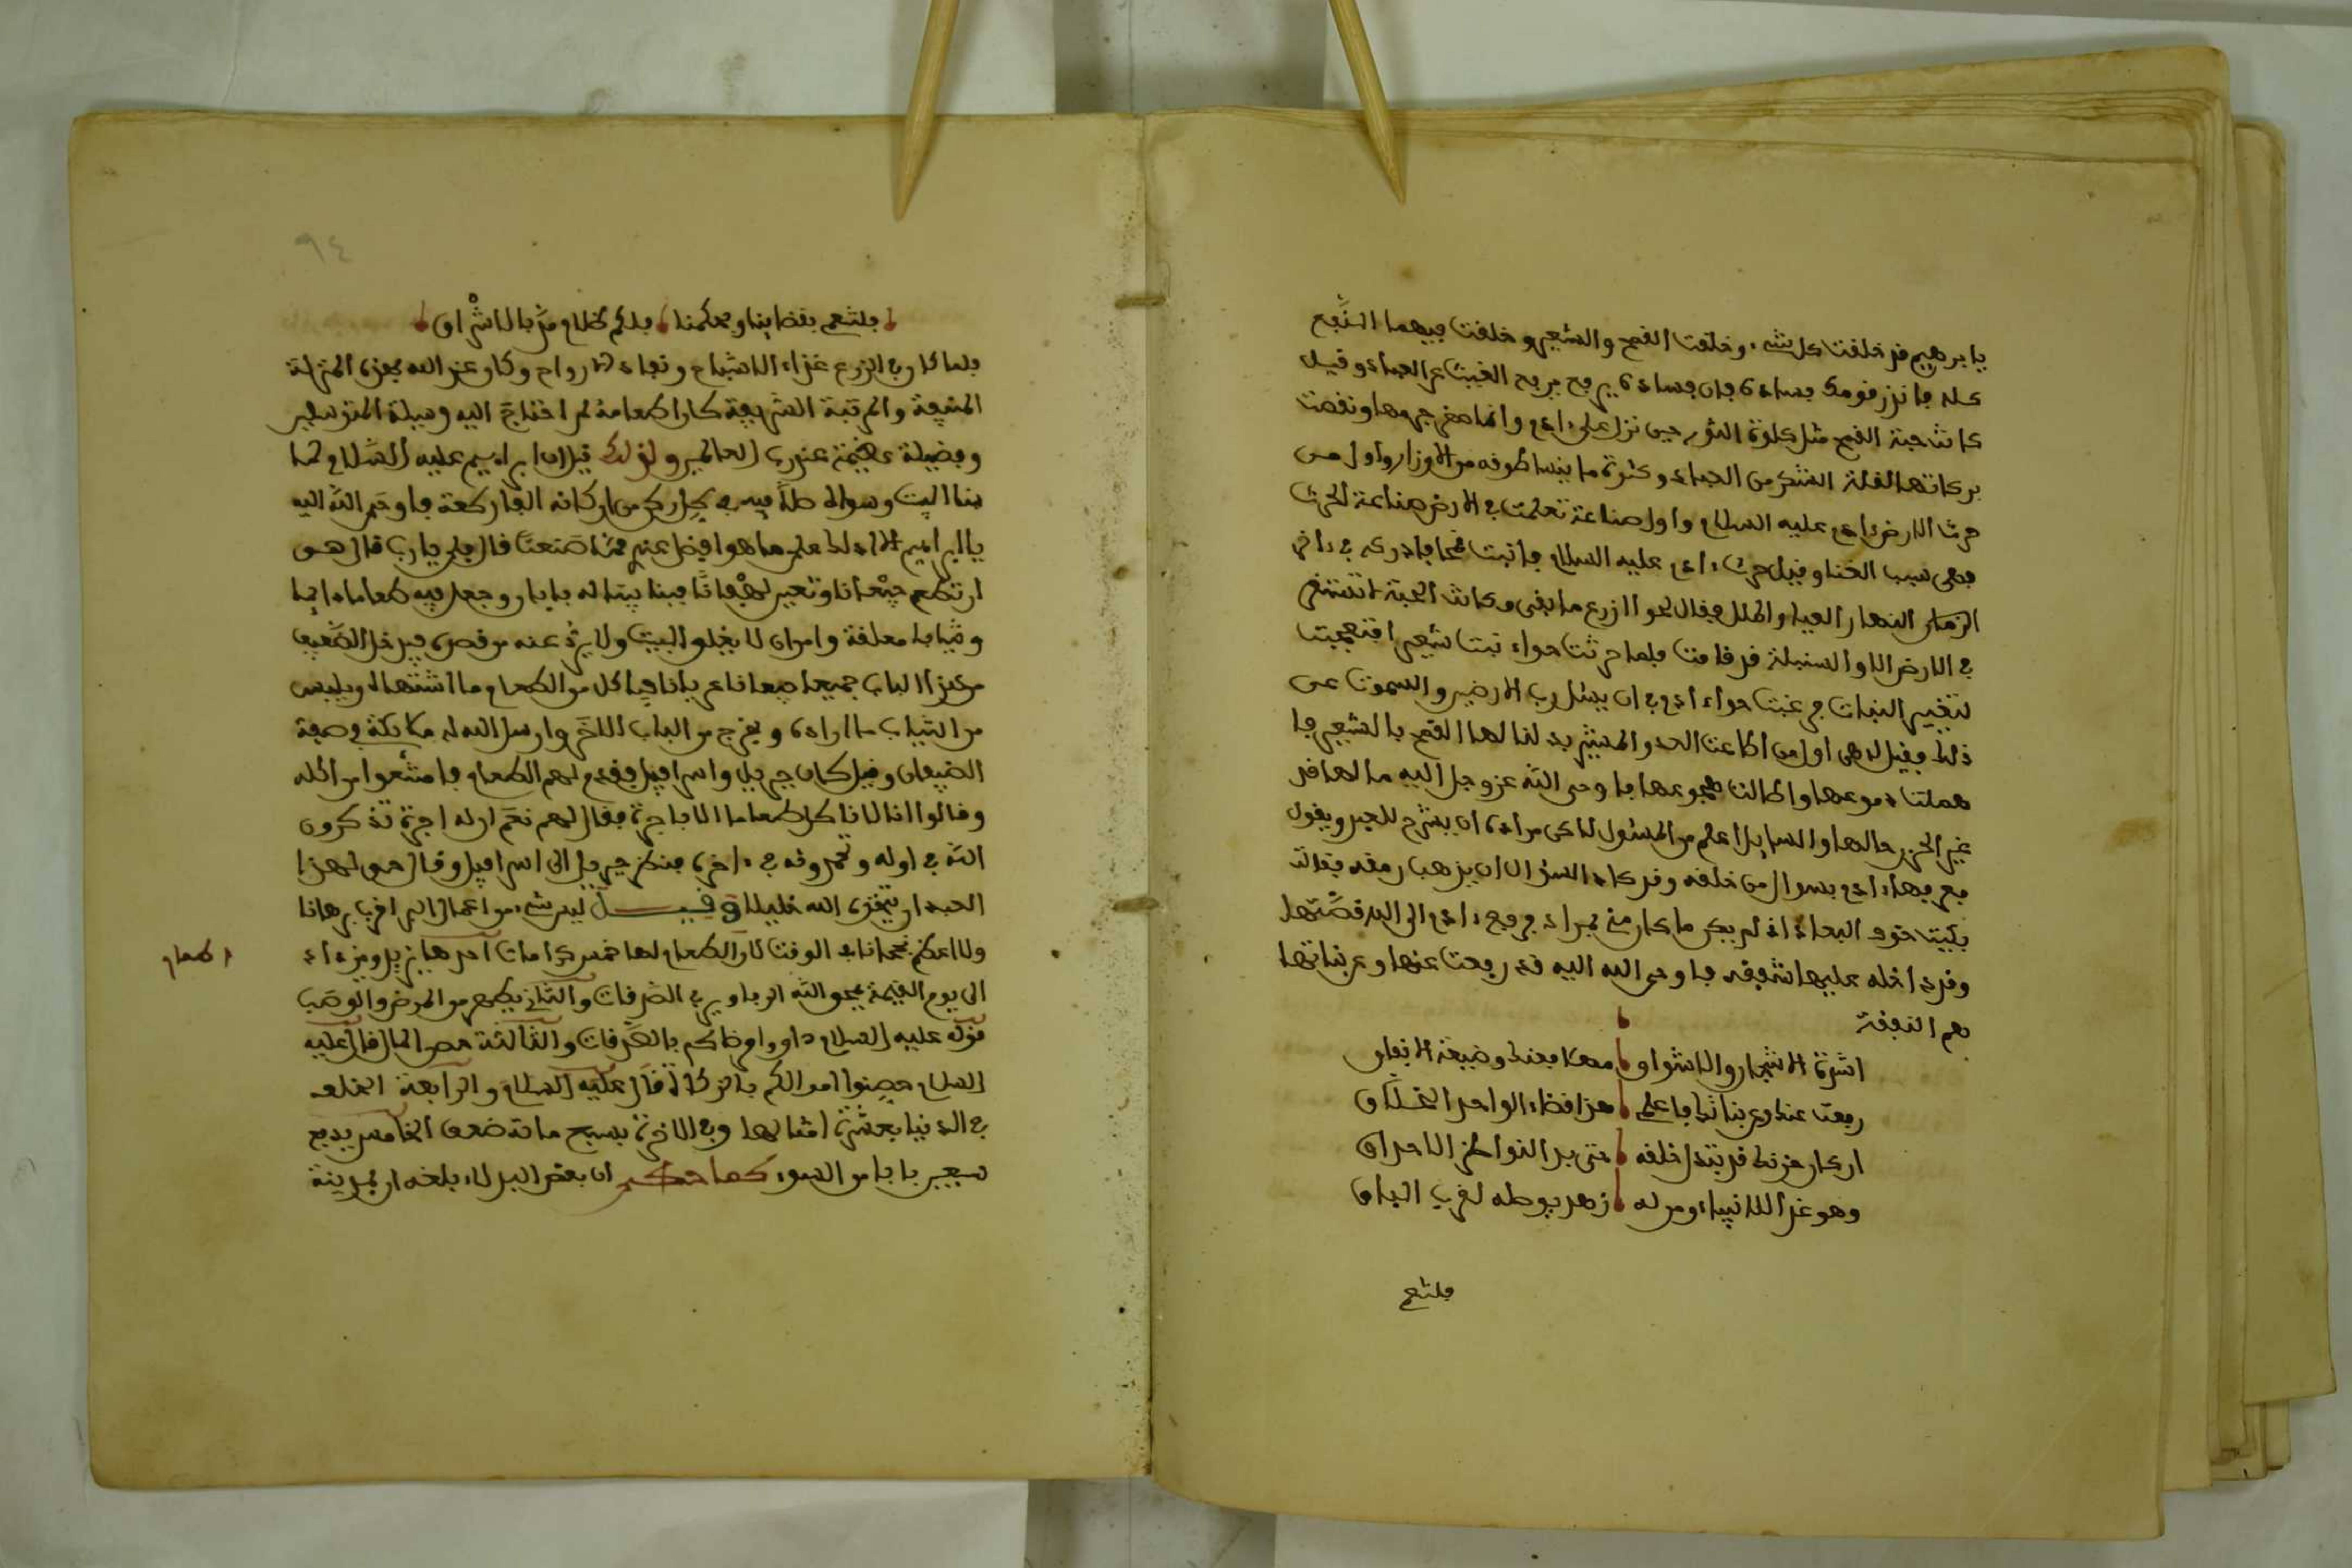 يا برهيم قد خلقت كل شيء وخلقت القمح والشعير وخلقت فيهما النَّفع
كله فانذر قومك بساده فان فساده يرفع بربح الغيث عن العباد وقيل
كانت حبة القمح مثل كلوة الثور حين نزل على ءادم وانما صغر جرمها ونقصت
بركاتها لقلة الشكر من العباد وكثرة ما بنسا طوفه من الاوزار واول من
حرث الارض ءادم عليه السلام واول صناعة تعلمت في الارض صناعة الحرث
فهي سبب الغنا وقيل حرث ءادم عليه السلام فانبت قمحا فادركه في ءاخر
النهار فقال لحوا ازرع ما بقى وكانت الحبة لا تستقر
في الارض الا والسنبلة قد قامت فلما حرثت حواء نبت شعيرا فتعجبت
لتغيير النبات فرغبت حواء ءادم في ان يسئل رب الارضين والسموت عن
ذلك فقيل له هي اول من اطاعت العدو المبين بدلنا لها القمح بالشعير فا
هملت دموعها واطالت فجوعها فاوحى الله عز وجل اليه ما لها قد
غير الحزن حالها والسايل اعلم من المسئول لاكن مراده ان يشرح للعبر ويقول
فعرفها ءادم بسوال من خلقه وقد كاد السؤال ان يذهب رمقه فقالت
بكيت خوف البعاد اذ لم يكن ما كان مني بمراد فرفع ءادم الى الله قصَّتها
وقد داخله عليها شفقه فاوحى الله اليه قد رفعت عنها وعن بناتها
هم النفقة
اشرة الاشجار والاسواق معكا فعند وضيعة الانفاق
رفعت عنك وعن بناتك فاعلم هذا قضاء الواحد الخلَّاق
ان كان حزنك قد بتدا خلقه حتى بدا لنواظر الاحداق
وهو غذا للانبياء ومن له زهد بوصله لقرب الباق
فلتنعم
فلتنعم بقضاينا وبحكمنا فلكم ظلام مزَّ بالاشْراق
فلما كان الزرع غذاء الاشباح وبقاء الارواح وكان عند الله بهذه المنزلة
المنيفة والمرتبة الشريفة كان اطعامه لمن احتاجَ اليه وسيلة المتوسلين
وفضيلة عظيمة عند رب العالمين ولذلك قيل ان ابراهيم عليه السَّلام لما
بنا البيت وسواه صلَّا فيه في كل ركن من اركانه الف ركعة فاوحَى الله اليه
يا ابراهيم الا ادلك على ما هو افضل عندي ممَّا صَنعتَ قال بلى يارب قال هو
ان تطعم جيْعانا وتعين لهْفانًا فبنا بيتا له بابان وجعل فيه طعاما دايما
وثيابا معلقة وامر ان لا يغلق البيت ولا يردَّ عنه من قصده فيدخل الضَّعيف
من هذا الباب جميعا ضيعانا عريانا فياكل من الطعام ما اشتهاه ويلبس
من الثياب ما اراده ويخرج من الباب الاخَر وارسل الله له ملائكة في صفة
الضيفان وقيل كان جبريل واسرافيل فقدم لهم الطعام فامتنعوا من اكله
وقالوا انا لا ناكل طعاما الا باجرة فقال لهم نعَم ان له اجرة تذكرون
اللَّه في اوله وتحمدونه في ءاخره فنظر جبريل الى اسرافيل وقال حق لهذا
العبد ان يتخذه الله خليلا وقيــل ليس شيء من اعمال البر اقرب برهانا
ولا اعظم نجحانا في الوقت كالطعام لها خمس كرامات احدها يزيل ويزداد
الطعام
الى يوم القيمة يمحو اللَّه الربا ويربي الصَّدقات والثاني يطهر من المرض والوصَب
قوله عليه السلام داووا مرضاكم بالصَّدقات والثالثة حصن المال قال عليه
السلام حصِنوا اموالكم بالزكاة قال عليه السلام والرابعة الخلف
في الدنيا بعشْرة امثالها وفي الاخرة بسبع مائة ضعف الخامس يدفع
سبعين بابا من السوء كما حكى ان بعض البدلاء بلغه ان بمدينة